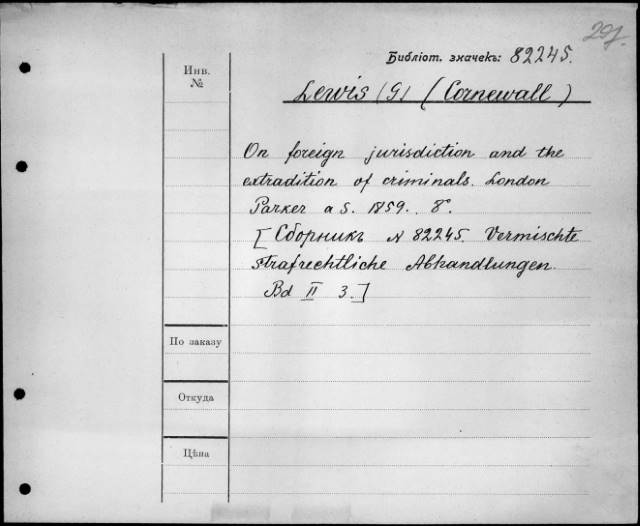 297.
Библіот. значекъ: 82245.
Инв.
№
Lewis (G) (Cornewall)
On foreign jurisdiction and the
extradition of criminals. London
Parker a S. 1859. 8°.
[Сборникъ N 82245. Vermischte
strafrechtliche Abhandlungen.
Bd II 3.]
По заказу
Откуда
Цѣна